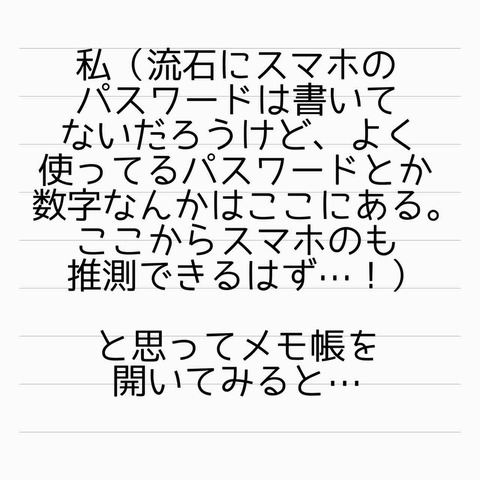 私（流石にスマホの
パスワードは書いて
ないだろうけど、よく
使ってるパスワードとか
数字なんかはここにある。
ここからスマホのも
推測できるはず…！）
と思ってメモ帳を
開いてみると…